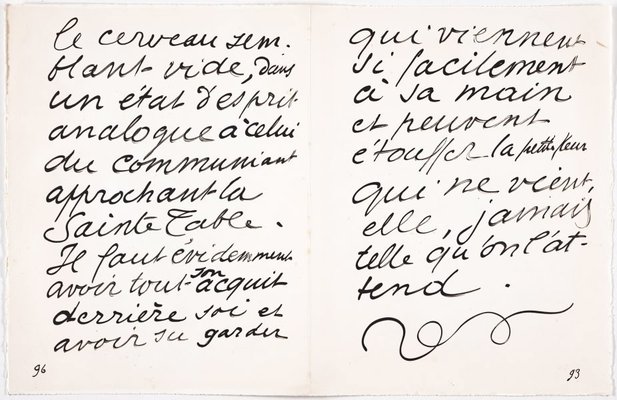 le cerveau sem-
blant vide, dans
un état d'esprit
analogue à celui
du communiant
approchant la
Sainte Table.
Il faut évidemment
avoir tout son acquit
derrière soi et
avoir su garder
96
qui viennent
si facilement
à sa main
et peuvent
étouffer la petite fleur
qui ne vient,
elle, jamais
telle qu'on l'at-
tend.
93